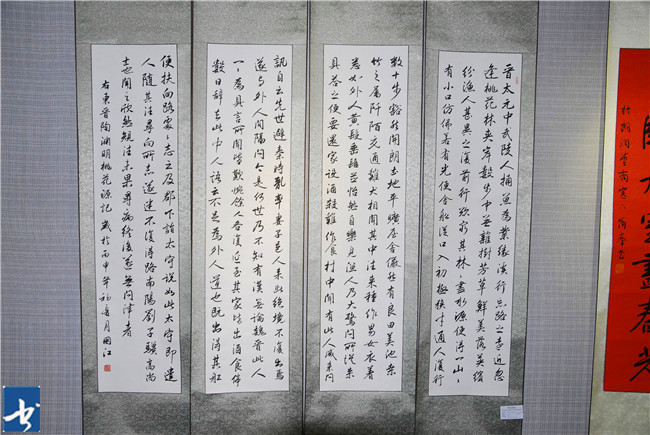 晉太元中武陵人捕魚為業緣溪行忘路之遠近忽
逢桃花林夾岸数百步中無雜樹芳草鮮美落英繽
紛漁人甚異之復前行欲窮其林々盡水源便得一山々
有小口仿佛若有光便舍船從口入初極狹才通人復行
数十步豁然開朗土地平曠屋舍儼然有良田美池桑
竹之屬阡陌交通雞犬相聞其中往來種作男女衣著
悉如外人黃髮垂髫並怡然自樂見漁人乃大驚問所從來
具答之便要還家設酒殺雞作食村中聞有此人咸來問
訊自云先世避秦時亂率妻子邑人來此絕境不復出焉
遂与外人間隔問今是何世乃不知有漢無論魏晉此人
一一為具言所聞皆歎惋餘人各復延至其家皆出酒食停
數日辭去此中人語云不足為外人道也既出得其船
便扶向路處々志之及郡下詣太守說如此太守即遣
人隨其往尋向所志遂迷不復得路南陽劉子驥高尚
士也聞之欣然規往未果尋病終後遂無問津者
右東晉陶淵明桃花源記 歲於丙申年初春月國江